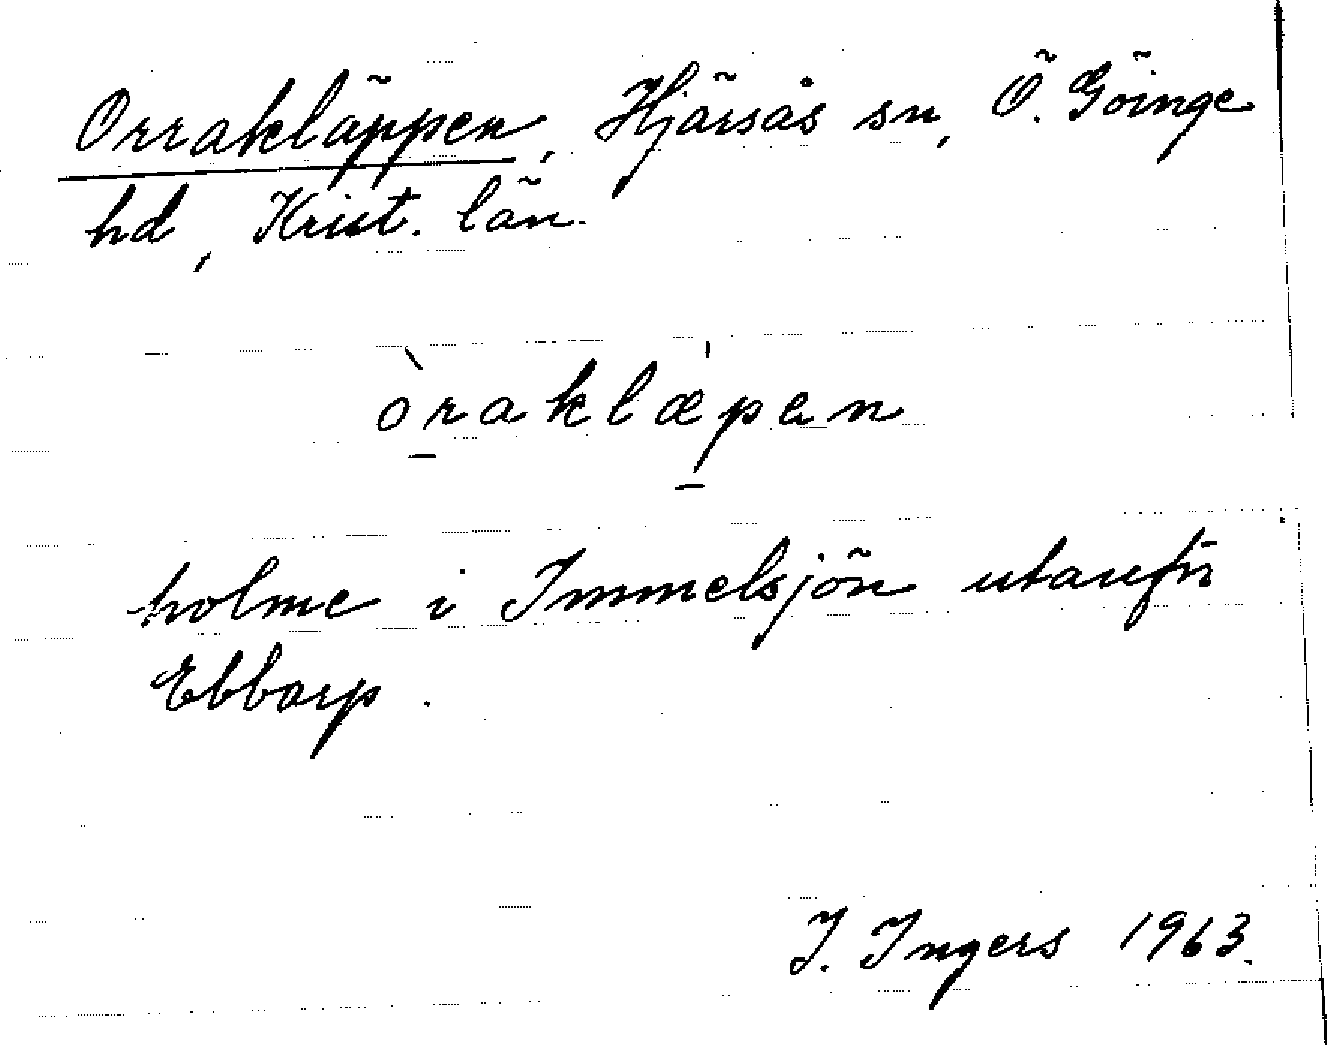 Orrakläppen, Hjärsås sn, Ö. Göinge
hd, Krist. län.
òraklæ̍pen
holme i Immelsjön utanför
Ebbarp.
I. Ingers 1963.